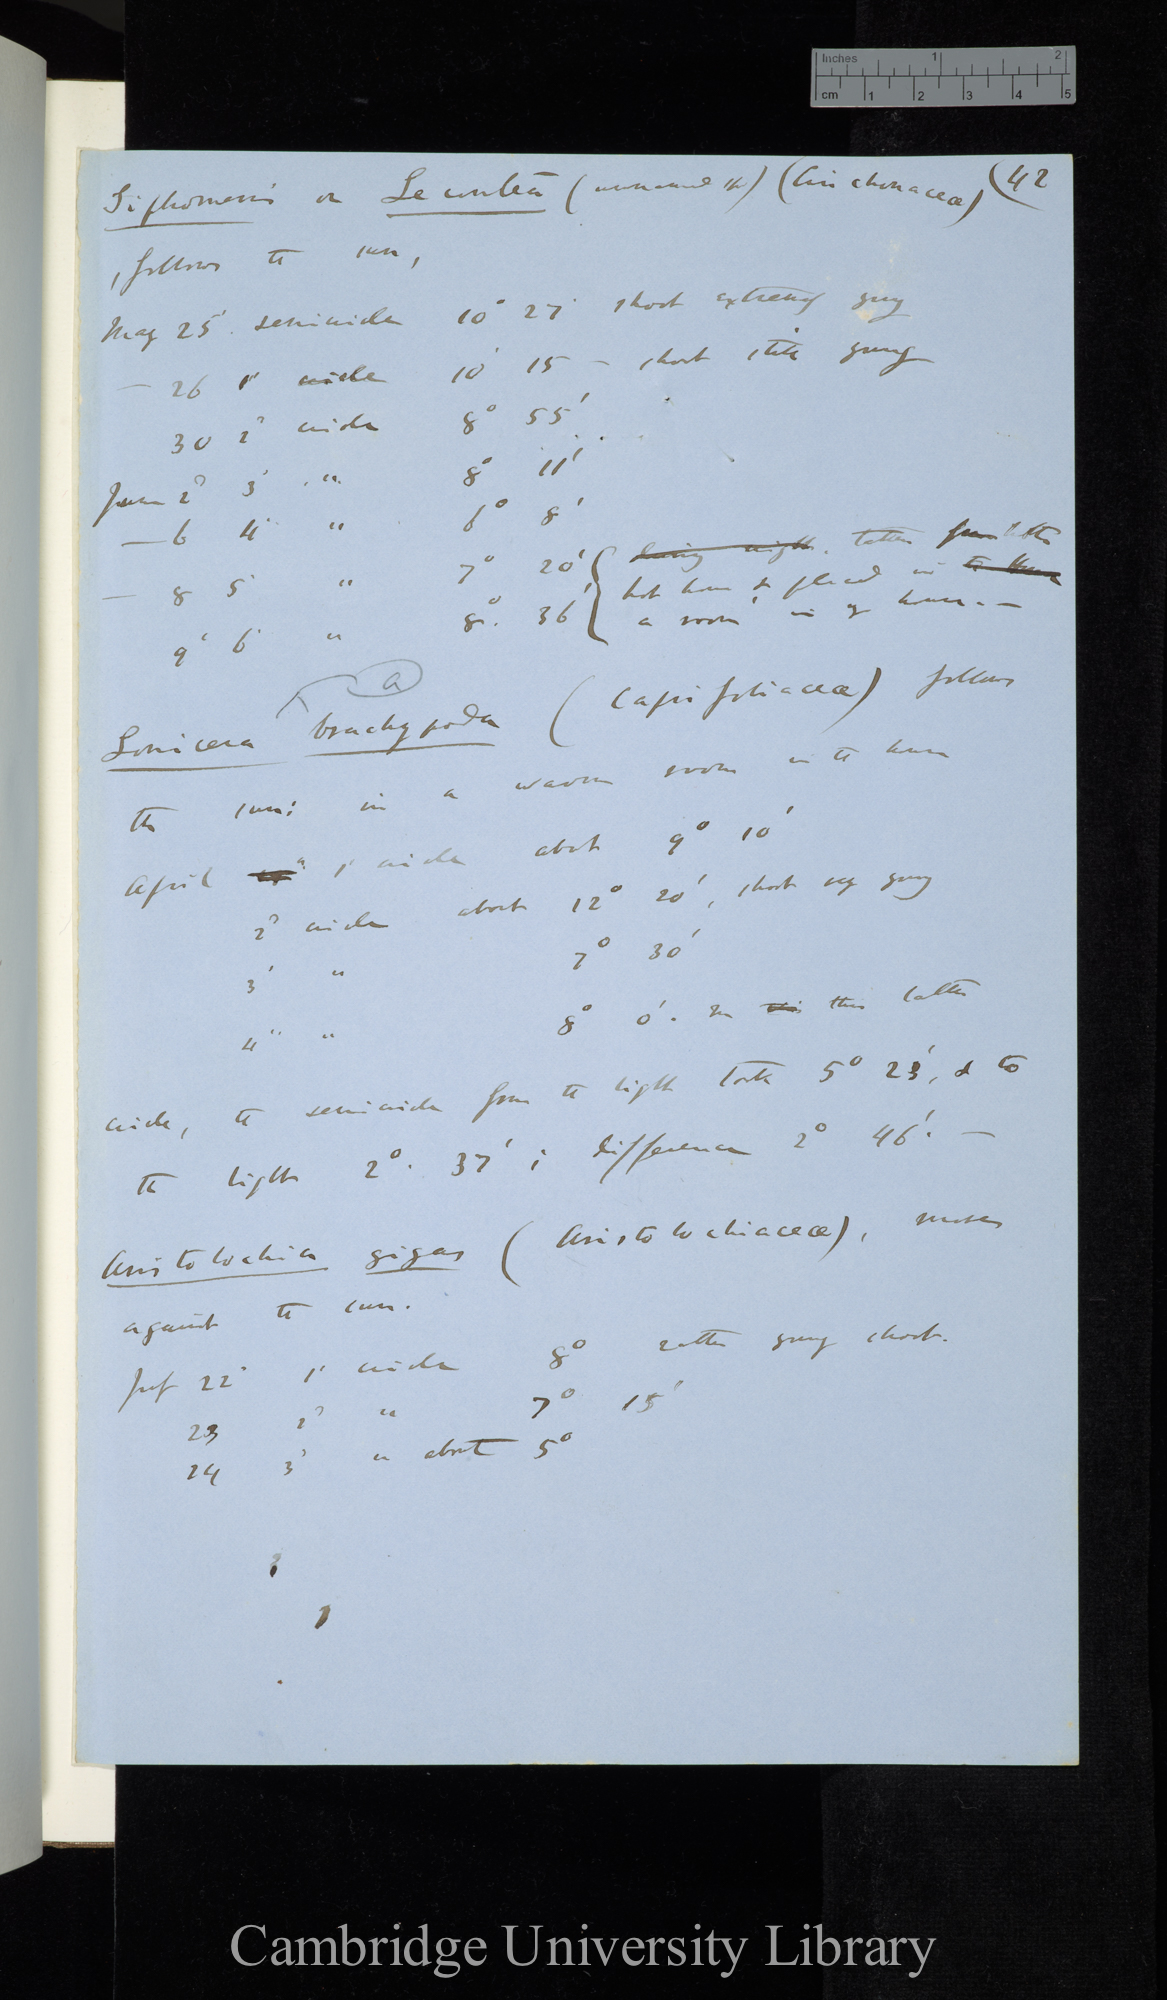 Inches 1 2
cm 1 2 3 4 5
(42
Siphomeris or Lecontea (unnamed sp) (Cinchonaceæ)
, follows the sun,
May 25' semicircle 10° 27' shoot extremely young
— 26 1' circle 10 15 — shoot still young
30 2d circle 8° 55'
June 2d 3' " 8° 11'
— 6 4' " 6° 8'
— 8 5' " 7° 20' { during night. taken from latter
9' 6' " 8° 36' hot house & placed in the house
a room in my house. —
(a)
Lonicera brachypoda (Caprifoliaceæ) follows
the sun: in a warm room in the house
April 1' circle about 9° 10'
2d circle about 12° 20', shoot very young
3' " 7° 30'
4" " 8° 0'. In this this latter
circle, the semicircle from the light took 5° 23', & to
the light 2°. 37'; difference 2° 46'. —
Aristolochia gigas (Aristolochiaceæ), moves
against the sun.
July 22' 1' circle 8° rather young shoot.
23 2d " 7° 15'
24 3d " about 5°
Cambridge University Library